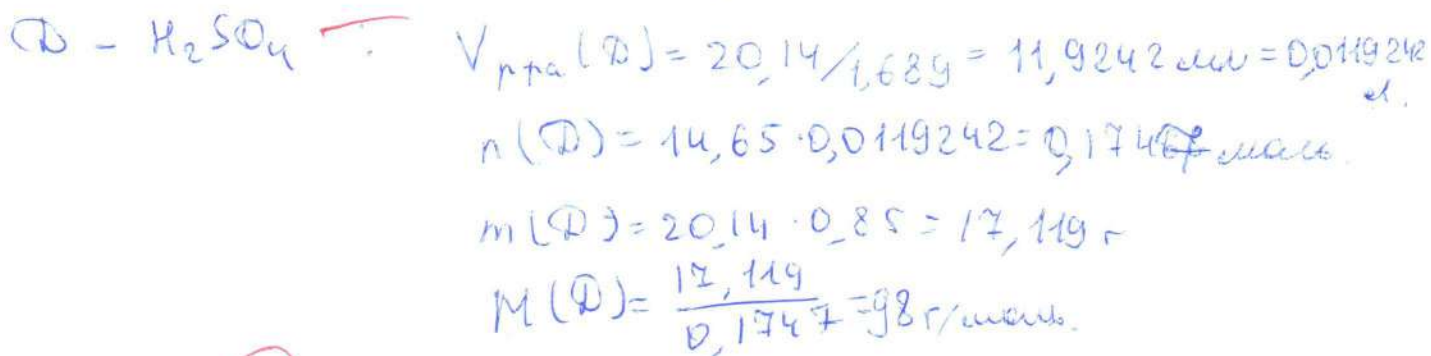 D - H₂SO₄ V р-ра (D) = 20,14/1,689 = 11,9242 мл = 0,0119242 л.
n(D) = 14,65 · 0,0119242 = 0,1747 моль.
m(D) = 20,14 · 0,85 = 17,119 г
M(D) = 17,119 / 0,1747 = 98 г/моль.